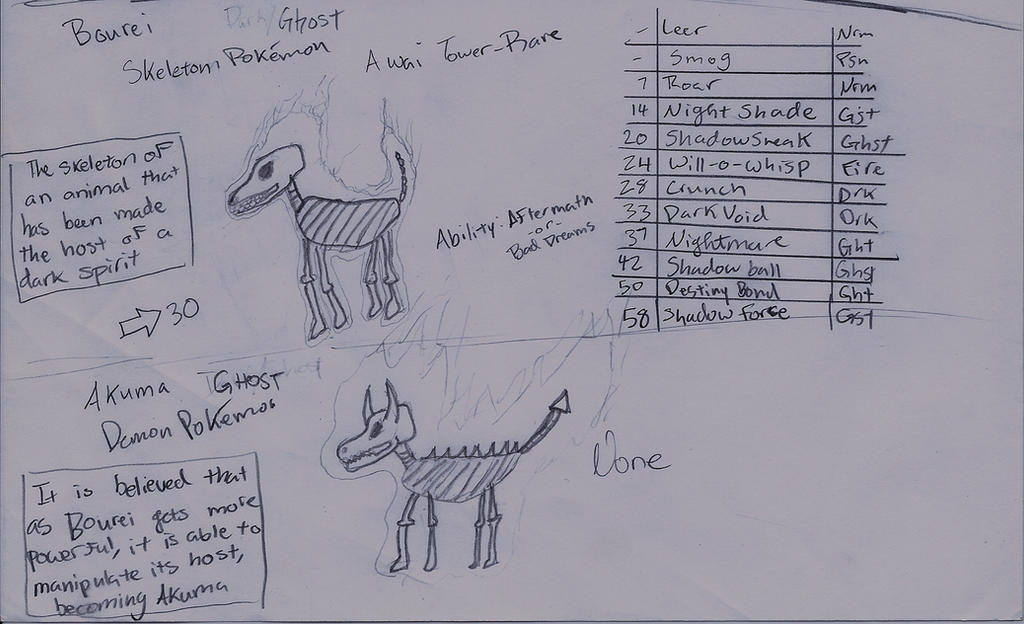 Bourei
Dark/Ghost
Skeletom Pokémon
Awai Tower-Rare
The skeleton of
an animal that
has been made
the host of a
dark spirit
→ 30
Ability: Aftermath
-or-
Bad Dreams
- Leer Nrm
- Smog Psn
7 Roar Nrm
14 Night Shade Gst
20 Shadow Sneak Ghst
24 Will-o-whisp Fire
28 Crunch Drk
33 Dark Void Drk
37 Nightmare Ght
42 Shadow ball Ghst
50 Destiny Bond Ght
58 Shadow Force Gst
Akuma GHOST
Demon Pokémon
It is believed that
as Bourei gets more
powerful, it is able to
manipulate its host,
becoming Akuma
None